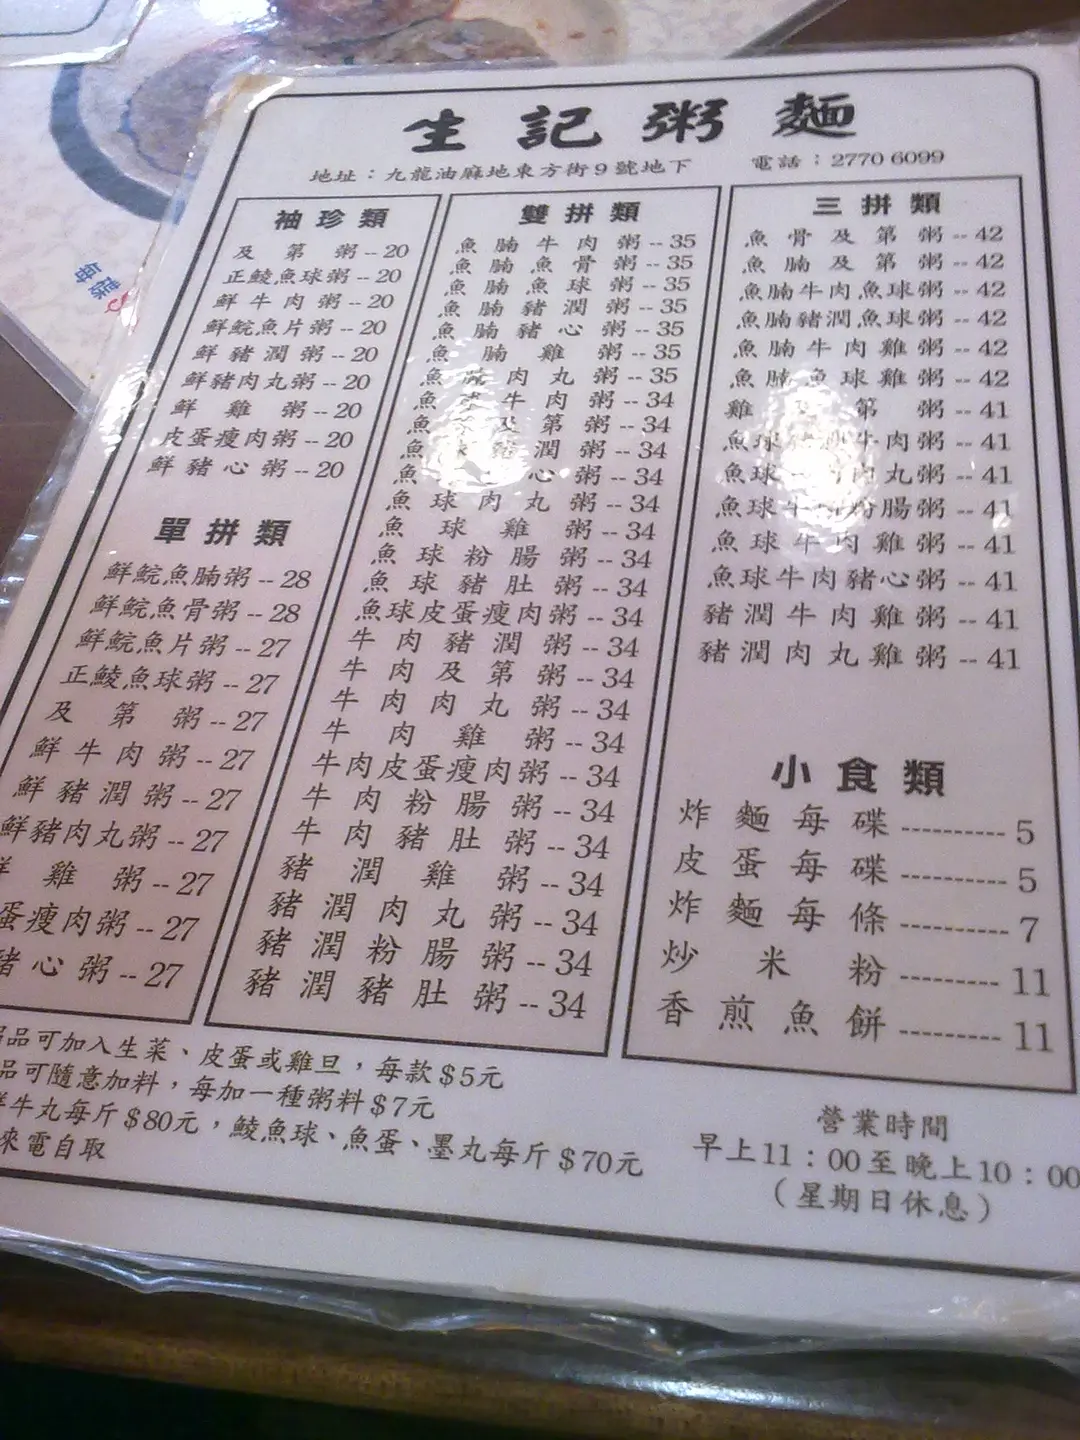 生記粥麵
地址：九龍油麻地東方街9號地下
電話：2770 6099
袖珍類
及第粥--20
正鯪魚球粥--20
鮮牛肉粥--20
鮮鯇魚片粥--20
鮮豬潤粥--20
鮮豬肉丸粥--20
鮮雞粥--20
皮蛋瘦肉粥--20
鮮豬心粥--20
單拼類
鮮鯇魚腩粥--28
鮮鯇魚骨粥--28
鮮鯇魚片粥--27
正鯪魚球粥--27
及第粥--27
鮮牛肉粥--27
鮮豬潤粥--27
鮮豬肉丸粥--27
雞粥--27
蛋瘦肉粥--27
豬心粥--27
雙拼類
魚腩牛肉粥--35
魚腩魚骨粥--35
魚腩魚球粥--35
魚腩豬潤粥--35
魚腩豬心粥--35
魚腩雞粥--35
魚腩肉丸粥--35
魚球牛肉粥--34
魚球及第粥--34
魚球豬潤粥--34
魚心粥--34
魚球肉丸粥--34
魚球雞粥--34
魚球粉腸粥--34
魚球豬肚粥--34
魚球皮蛋瘦肉粥--34
牛肉豬潤粥--34
牛肉及第粥--34
牛肉肉丸粥--34
牛肉雞粥--34
牛肉皮蛋瘦肉粥--34
牛肉粉腸粥--34
牛肉豬肚粥--34
豬潤雞粥--34
豬潤肉丸粥--34
豬潤粉腸粥--34
豬潤豬肚粥--34
三拼類
魚骨及第粥--42
魚腩及第粥--42
魚腩牛肉魚球粥--42
魚腩豬潤魚球粥--42
魚腩牛肉雞粥--42
魚腩魚球雞粥--42
雞及第粥--41
魚球豬潤牛肉粥--41
魚球肉丸粥--41
魚球牛肉粉腸粥--41
魚球牛肉雞粥--41
魚球牛肉豬心粥--41
豬潤牛肉雞粥--41
豬潤肉丸雞粥--41
小食類
炸麵每碟----------5
皮蛋每碟----------5
炸麵每條----------7
炒米粉---------11
香煎魚餅---------11
品可加入生菜、皮蛋或雞旦，每款$5元
品可隨意加料，每加一種粥料$7元
牛丸每斤$80元，鯪魚球、魚蛋、墨丸每斤$70元
來電自取
營業時間
早上11：00至晚上10：00
（星期日休息）